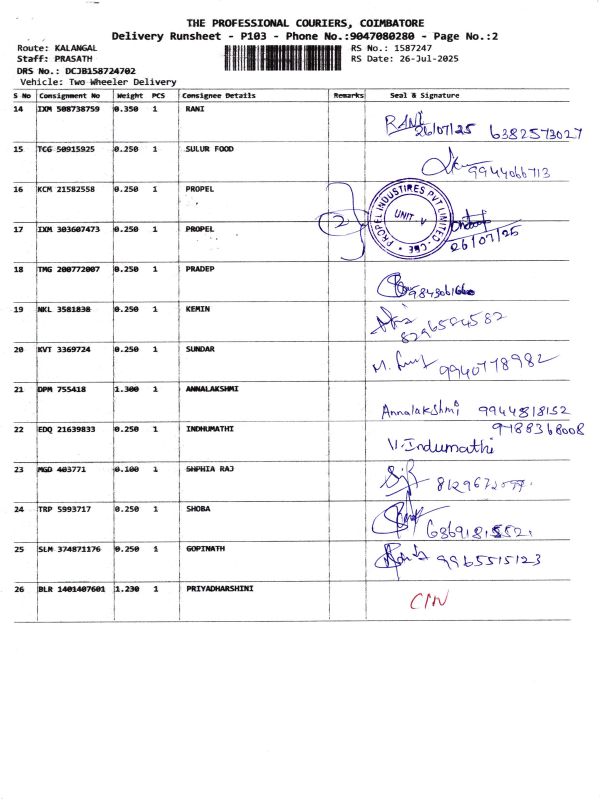 THE PROFESSIONAL COURIERS, COIMBATORE
Delivery Runsheet - P103 - Phone No.:9047080280 - Page No.:2
Route: KALANGAL RS No.: 1587247
Staff: PRASATH RS Date: 26-Jul-2025
DRS No.: DCJB158724702
Vehicle: Two Wheeler Delivery
S No Consignment No Weight PCS Consignee Details Remarks Seal & Signature
14 IXM 508738759 0.350 1 RANI
RANI 26/07/25 6382573027
15 TCG 50915925 0.250 1 SULUR FOOD
9944066713
16 KCM 21582558 0.250 1 PROPEL
PROPEL INDUSTIRES PVT LIMITED - CBE
UNIT - V
2
17 IXM 303607473 0.250 1 PROPEL
26/07/25
18 TMG 200772007 0.250 1 PRADEP
19 NKL 3581838 0.250 1 KEMIN
8296584582
20 KVT 3369724 0.250 1 SUNDAR
9940778982
21 DPM 755418 1.300 1 ANNALAKSHMI
Annalakshmi 9944818152
22 EDQ 21639833 0.250 1 INDHUMATHI
9788368008
V.Indumathi
23 MGD 403771 0.100 1 SHPHIA RAJ
24 TRP 5993717 0.250 1 SHOBA
25 SLM 374871176 0.250 1 GOPINATH
9965515123
26 BLR 1401407601 1.230 1 PRIYADHARSHINI